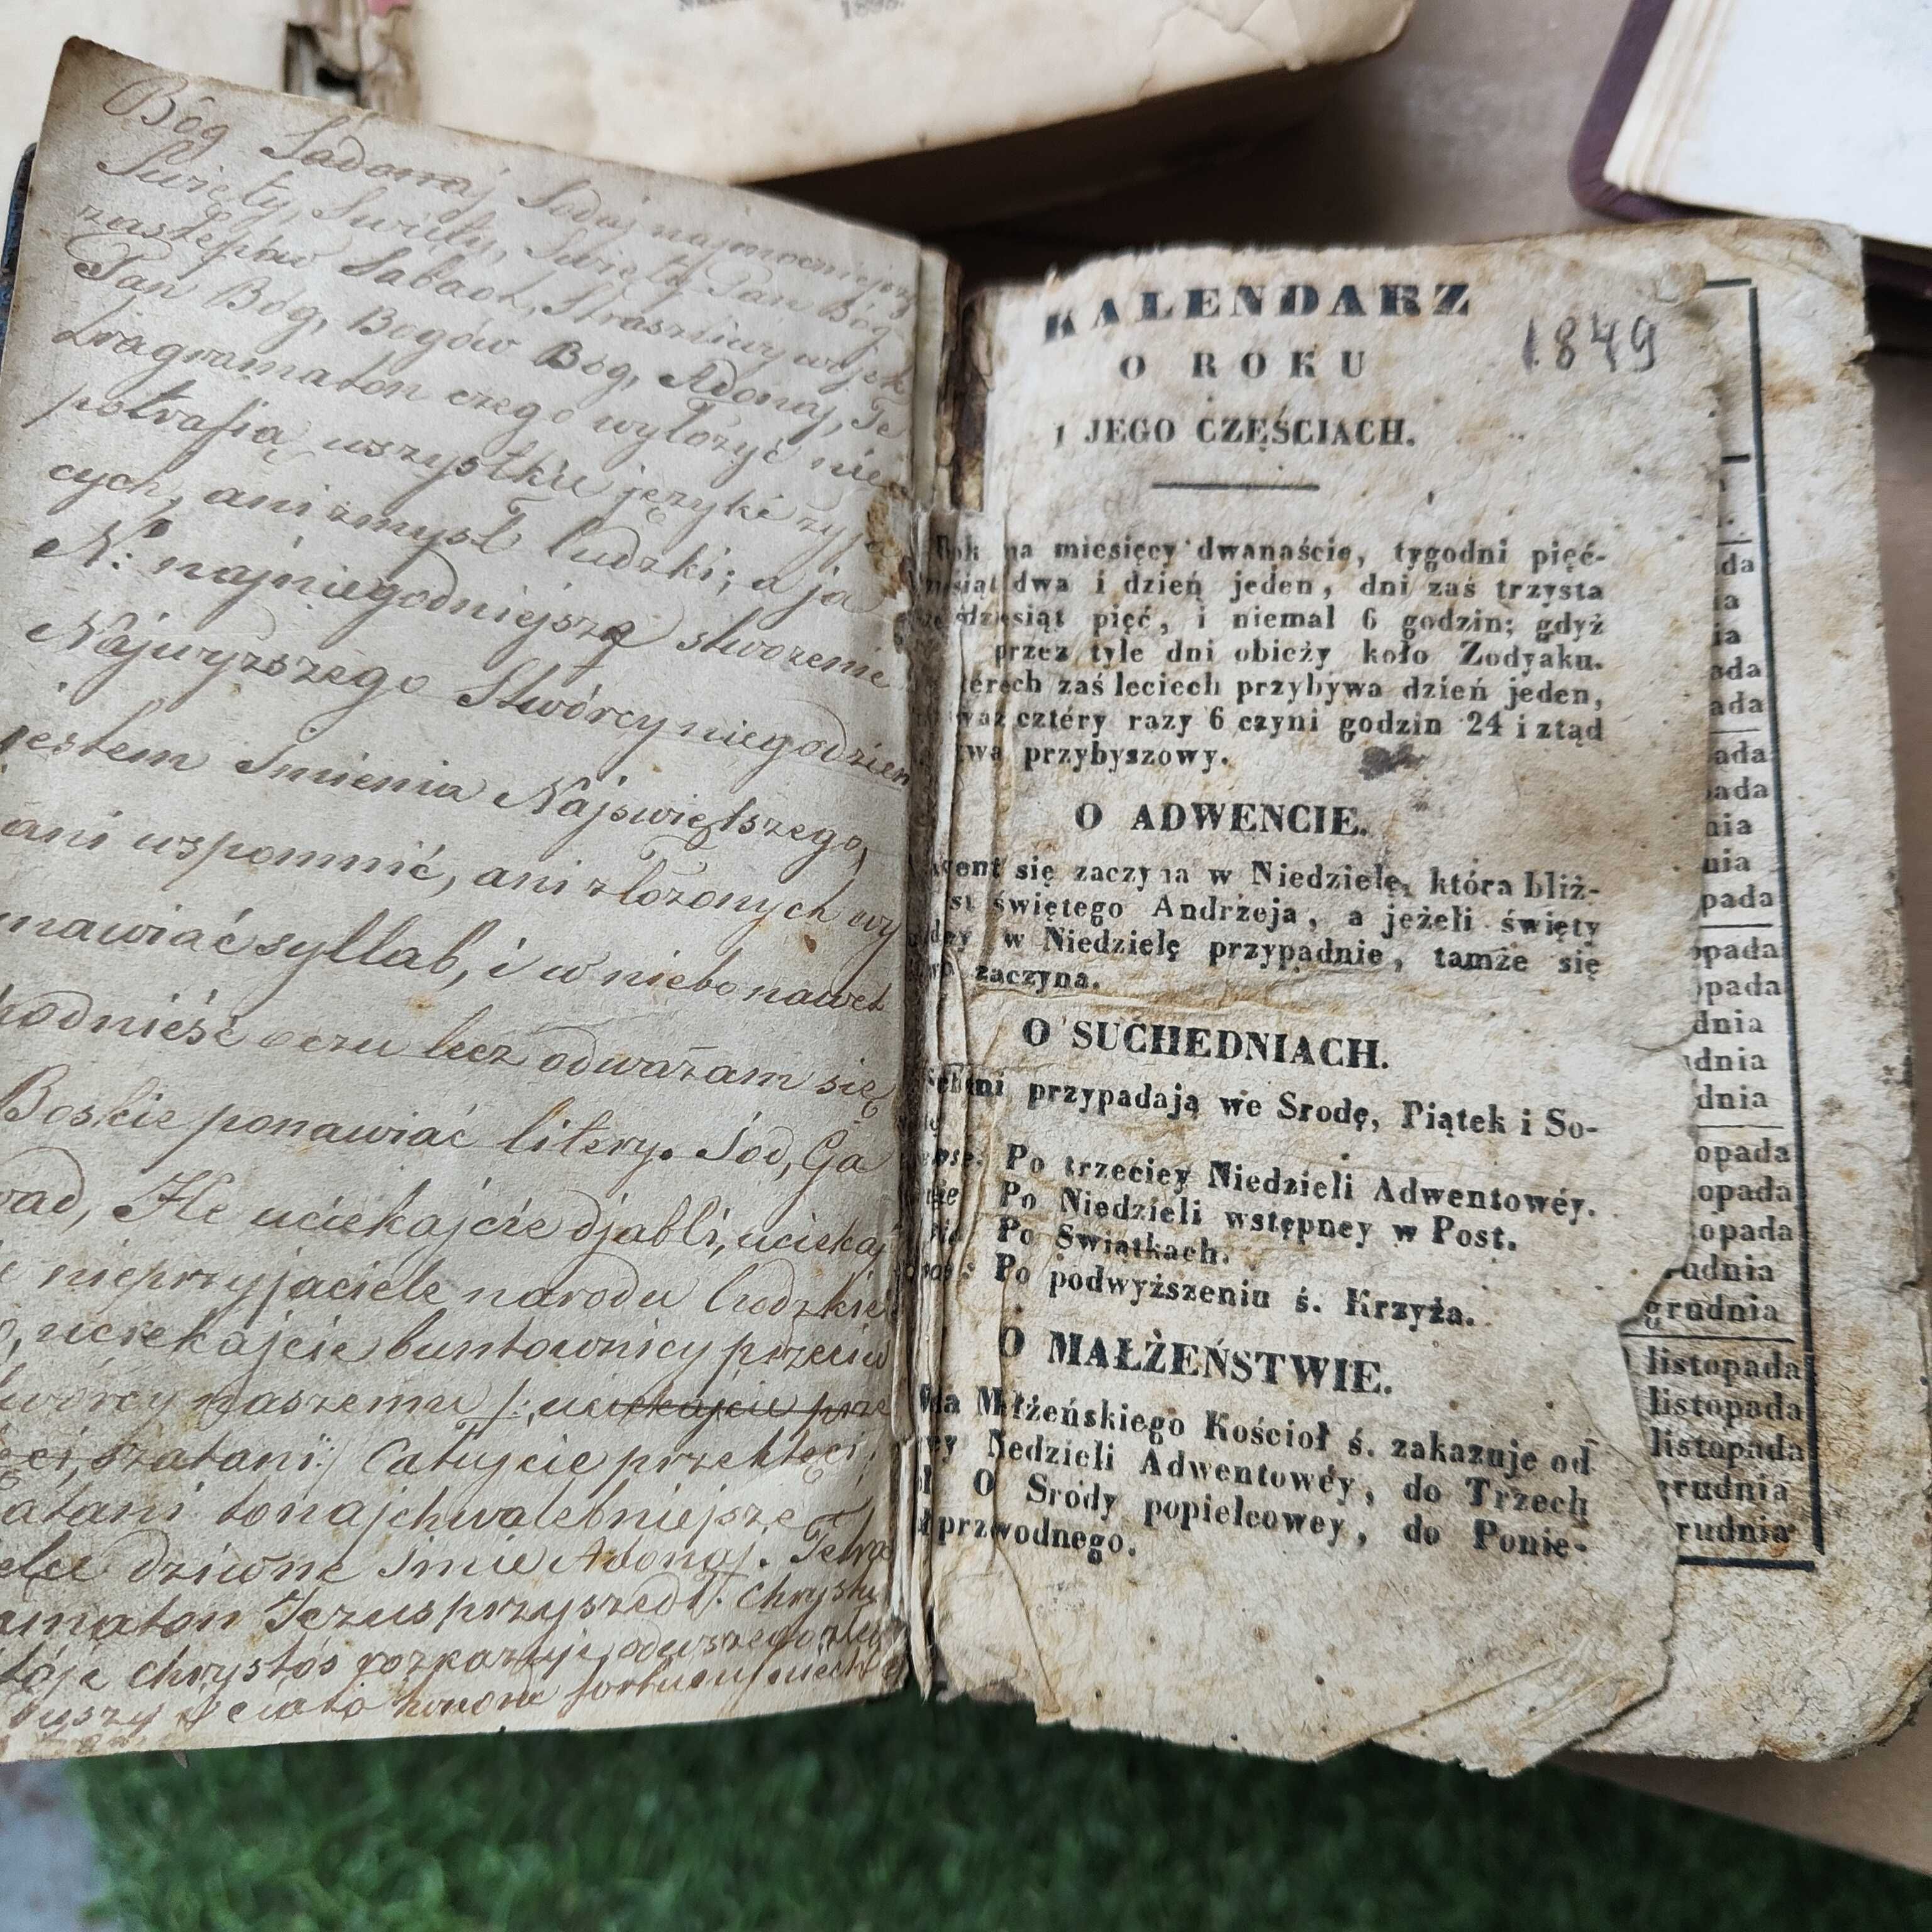 1898.
Bóg Sadonaj Sodaj najmocniejszy
Swięty, Swięty, Swięty Pan Bóg
zastępów Sabaoth, Straszliwy wojsk
Pan Bóg, Bogów Bóg, Adonaj, Te
tragramaton czego wyłożyć nie
potrafią wszystkie języki żyją
cych, ani zmysł ludzki; a ja
N: najniegodniejsze stworzenie
Najwyzszego Stwórcy niegodzien
jestem Imienia Najswiętszego,
ani wspomnić, ani złożonych wy
mawiać syllab, i w niebo nawet
podnieść oczu lecz odważam się
Boskie ponawiać litery. Jod, Ga
rad, He uciekajcie djabli, uciekaj
nieprzyjaciele narodu ludzkie
uciekajcie buntownicy przeciw
twórcy naszemu /: uciekajcie prze
szatani:/ Całujcie przeklęci,
atani to najchwalebniejsze i
dziwne imie Adonaj. Tetra
amaton Jezus przyszedł. Chrystu
Chrystós rozkazuje, od wszego złego
duszy ciała honoru fortuny niech
KALENDARZ
1849
O ROKU
I JEGO CZĘŚCIACH.
Rok ma miesięcy dwanaście, tygodni pięć-
dwa i dzień jeden, dni zaś trzysta
pięć, i niemal 6 godzin; gdyż
przez tyle dni obieży koło Zodyaku.
zaś leciech przybywa dzień jeden,
cztéry razy 6 czyni godzin 24 i ztąd
przybyszowy.
O ADWENCIE.
się zaczyna w Niedzielę, która bliż-
świętego Andrzeja, a jeżeli święty
w Niedzielę przypadnie, tamże się
zaczyna.
O SUCHEDNIACH.
przypadają we Srodę, Piątek i So-
Po trzeciey Niedzieli Adwentowéy.
Po Niedzieli wstępney w Post.
Po Swiątkach.
Po podwyższeniu ś. Krzyża.
O MAŁŻEŃSTWIE.
Małżeńskiego Kościoł ś. zakazuje od
Niedzieli Adwentowéy, do Trzech
O Srody popielcowey, do Ponie-
przewodnego.
da
a
ia
ada
ada
ada
ada
nia
nia
pada
opada
pada
dnia
dnia
dnia
opada
opada
opada
udnia
grudnia
listopada
listopada
listopada
grudnia
rudnia